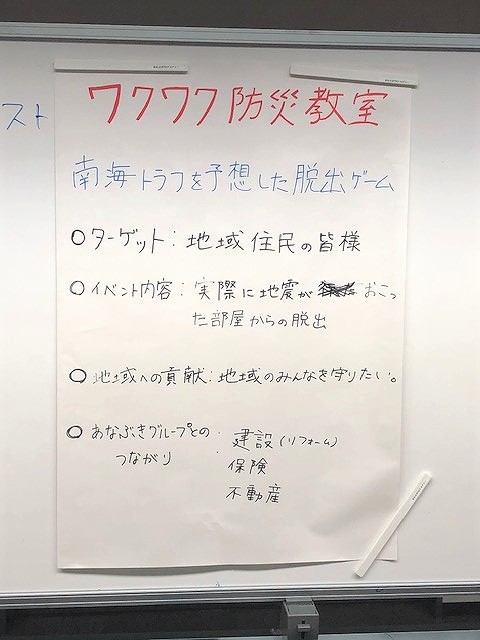 スト
ワクワク防災教室
南海トラフを予想した脱出ゲーム
○ターゲット：地域住民の皆様
○イベント内容：実際に地震がおこっ
た部屋からの脱出
○地域への貢献：地域のみんなを守りたい。
○あなぶきグループとの
つながり：建設（リフォーム）
保険
不動産